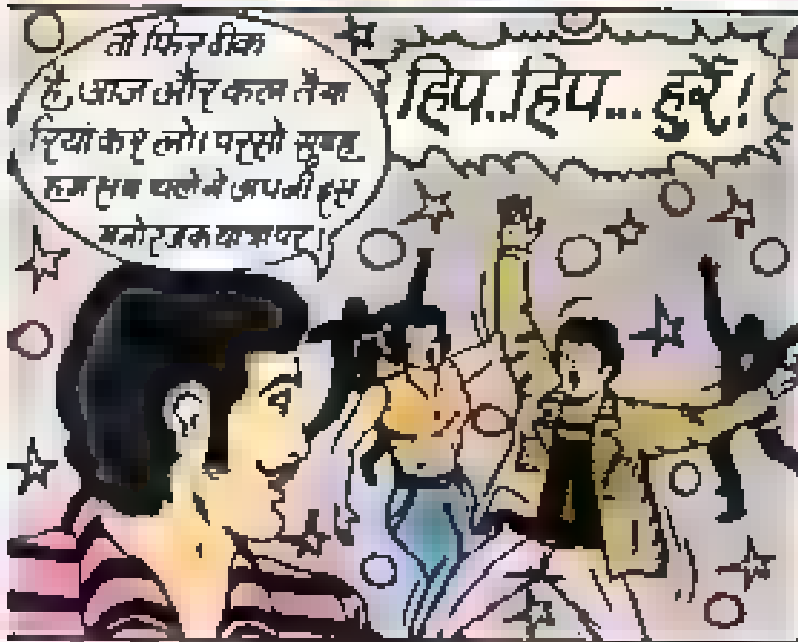 तो फिर ठीक
है, आज और कल तैया
रियां कर लो। परसो सुबह
हम सब चलेंगे अपनी इस
मनोरंजक यात्रा पर।
हिप..हिप... हुर्रे!